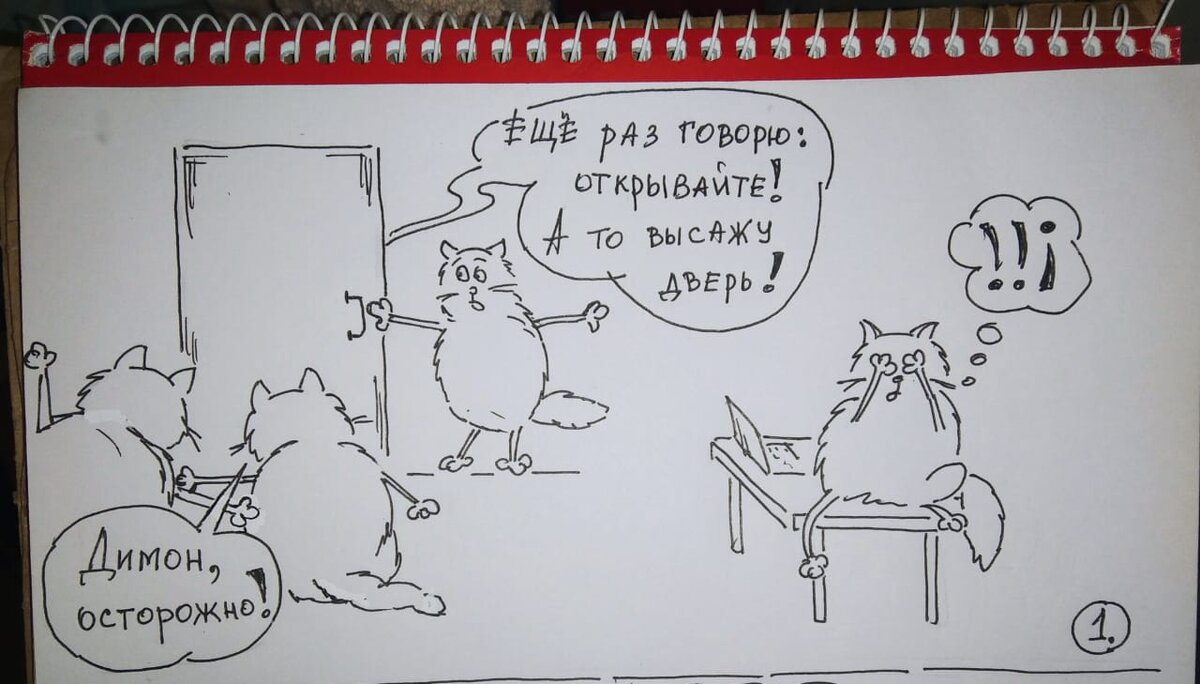 ЕЩЁ РАЗ ГОВОРЮ:
ОТКРЫВАЙТЕ!
А ТО ВЫСАЖУ
ДВЕРЬ!
!!!
Димон,
осторожно!
1.